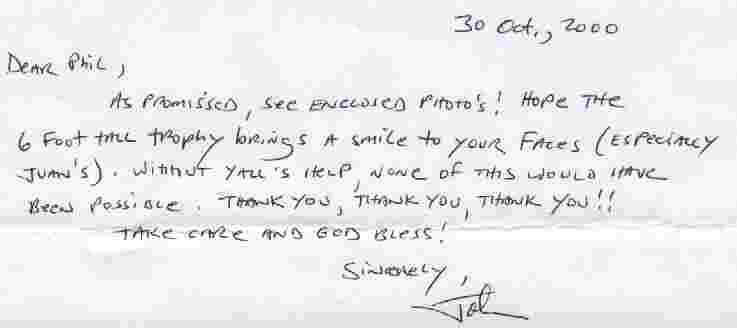 30 Oct., 2000
Dear Phil,
As promissed, see enclosed photo's! Hope the
6 foot tall trophy brings a smile to your faces (especially
Juan's). Without yall's help, none of this would have
been possible. Thank you, thank you, thank you!!
Take care and God bless!
Sincerely,